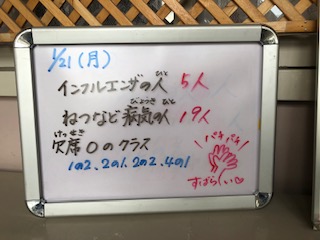 1/21(月)
インフルエンザの人 5人
ねつなど病気の人 19人
欠席0のクラス
1の2、2の1、2の2、4の1
パチパチ
すばらしい